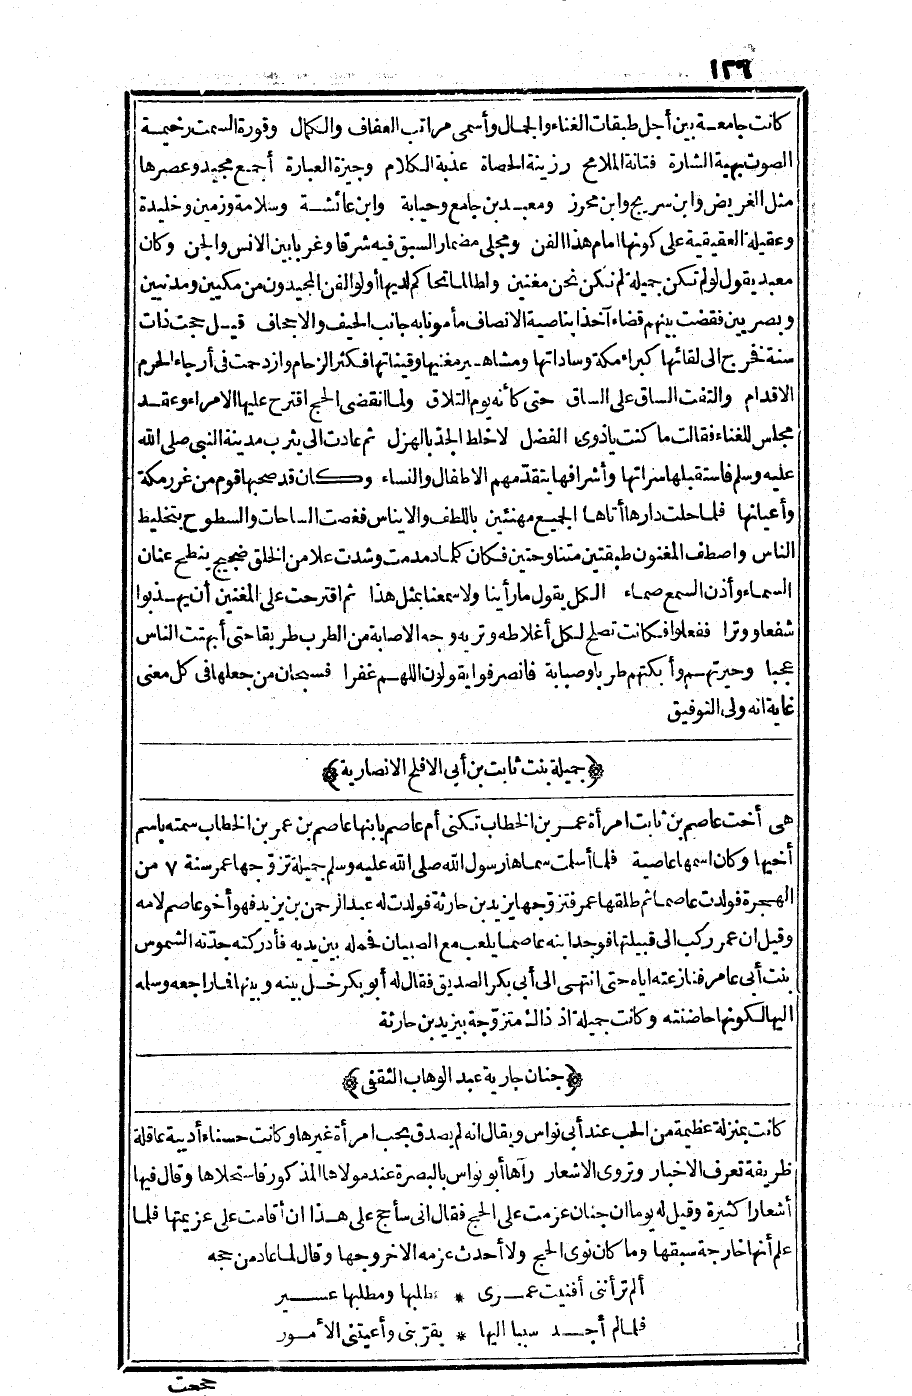 ١٢٦
كانت جامعة بين أجل طبقات الغناء والجمال وأسمى مراتب العفاف والكمال وقورة السمت رخيمة
الصوت بهية الشارة فتانة الملامح رزينة الحصاة عذبة الكلام وجيزة العبارة أجمع مجيدو عصرها
مثل الغريض وابن سريج وابن محرز ومعبد بن جامع وحبابة وابن عائشة وسلامة وزمين وخليدة
وعقيلة العقيقية على كونها امام هذا الفن ومجلى مضمار السبق فيه شرقا وغربا بين الانس والجن وكان
معبد يقول لو لم تكن جميلة لم نكن نحن مغنين واطالما تحاكم لديها أولو الفن المجيدون من مكيين ومدنيين
وبصريين فقضت بينهم قضاء آخذا بناصية الانصاف مأمونا به جانب الحيف والاجحاف قيل حجت ذات
سنة نفرج الى لقائها كبراء مكة وساداتها ومشاهير مغنيها وقيناتها فكثر الزحام وازدحمت فى أرجاء الحرم
الاقدام والتفت الساق على الساق حتى كأنه يوم التلاق ولما انقضى الحج اقترح عليها الامراء وعقد
مجلس للغناء فقالت ما كنت يا ذوى الفضل لاخلط الجد بالهزل ثم عادت الى يثرب مدينة النبى صلى الله
عليه وسلم فاستقبلها سراتها وأشرافها يتقدمهم الاطفال والنساء وكان قد صحبها قوم من غرر مكة
وأعيانها فلما حلت دارها أتاها الجميع مهنئين باللطف والايناس فغصت الساحات والسطوح بتخليط
الناس واصطف المغنون طبقتين متناوحتين فكان كلما دمدمت وشدت علا من الخلق ضجيج ينطح عنان
السماء وأذن السمع صماء الكل يقول ما رأينا ولا سمعنا بمثل هذا ثم اقترحت على المغنين أن يهذبوا
شفعا ووترا ففعلوا فكانت تصلح لكل أغلاطه وتريه وجه الاصابة من الطرب طريقا حتى أبهتت الناس
عجبا وحيرتهم وأبكتهم طربا وصبابة فانصرفوا يقولون اللهم غفرا فسبحان من جعلها فى كل معنى
غاية انه ولى التوفيق
﴿جميلة بنت ثابت بن أبى الاقلح الانصارية﴾
هى أخت عاصم بن ثابت امرأة عمر بن الخطاب تكنى أم عاصم بابنها عاصم بن عمر بن الخطاب سمته باسم
أخيها وكان اسمها عاصية فلما أسلمت سماها رسول الله صلى الله عليه وسلم جميلة تزوجها عمر سنة ٧ من
الهجرة فولدت عاصما ثم طلقها عمر فتزوجها يزيد بن حارثة فولدت له عبد الرحمن بن يزيد فهو أخو عاصم لامه
وقيل ان عمر ركب الى قبيلتها فوجد ابنه عاصما يلعب مع الصبيان فحمله بين يديه فأدركته جدته الشموس
بنت أبى عامر فنازعته اياه حتى انتهى الى أبى بكر الصديق فقال له أبو بكر خل بينه وبينها فما راجعه وسلمه
اليها لكونها حاضنته وكانت جميلة اذ ذاك متزوجة بيزيد بن حارثة
﴿جنان جارية عبد الوهاب الثقفى﴾
كانت بمنزلة عظيمة من الحب عند أبى نواس ويقال انه لم يصدق بحب امرأة غيرها وكانت حسناء أديبة عاقلة
ظريفة تعرف الاخبار وتروى الاشعار رآها أبو نواس بالبصرة عند مولاها المذكور فاستحلاها وقال فيها
أشعارا كثيرة وقيل له يوما ان جنان عزمت على الحج فقال انى سأحج على هذا ان أقامت على عزيمتها فلما
علم أنها خارجة سبقها وما كان نوى الحج ولا أحدث عزمه الا خروجها وقال لما عاد من حجه
ألم تر أننى أفنيت عمرى * بطلبها ومطلبها عسير
فلما لم أجد سببا اليها * يقربنى وأعيتنى الأمور
حججت